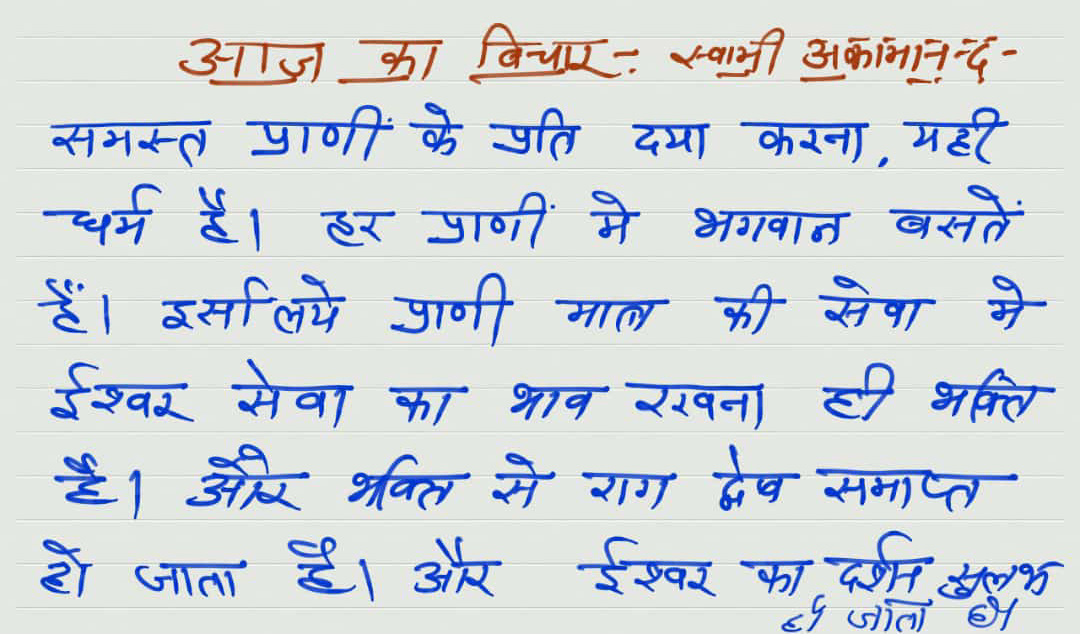 आज का विचार:- स्वामी अकामानन्द-
समस्त प्राणीं के प्रति दया करना, यही
धर्म है। हर प्राणीं मे भगवान बसतें
हैं। इसलिये प्राणी मात्र की सेवा मे
ईश्वर सेवा का भाव रखना ही भक्ति
है। और भक्ति से राग द्वेष समाप्त
हो जाता है। और ईश्वर का दर्शन सुलभ
हो जाता है